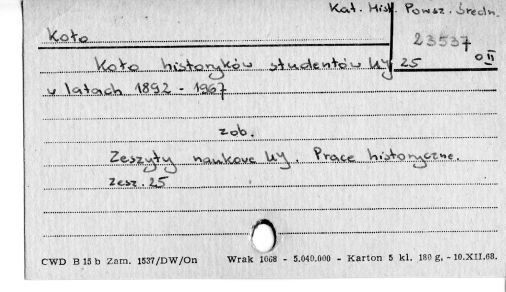 Kat. Hist. Powsz. Średn.
Koło
23537
0 II
Koło historyków studentów UJ 25
w latach 1892 - 1967
zob.
Zeszyty naukowe UJ. Prace historyczne.
zesz. 25
CWD B 15 b Zam. 1537/DW/On Wrak 1068 - 5.040.000 - Karton 5 kl. 180 g. - 10.XII.68.